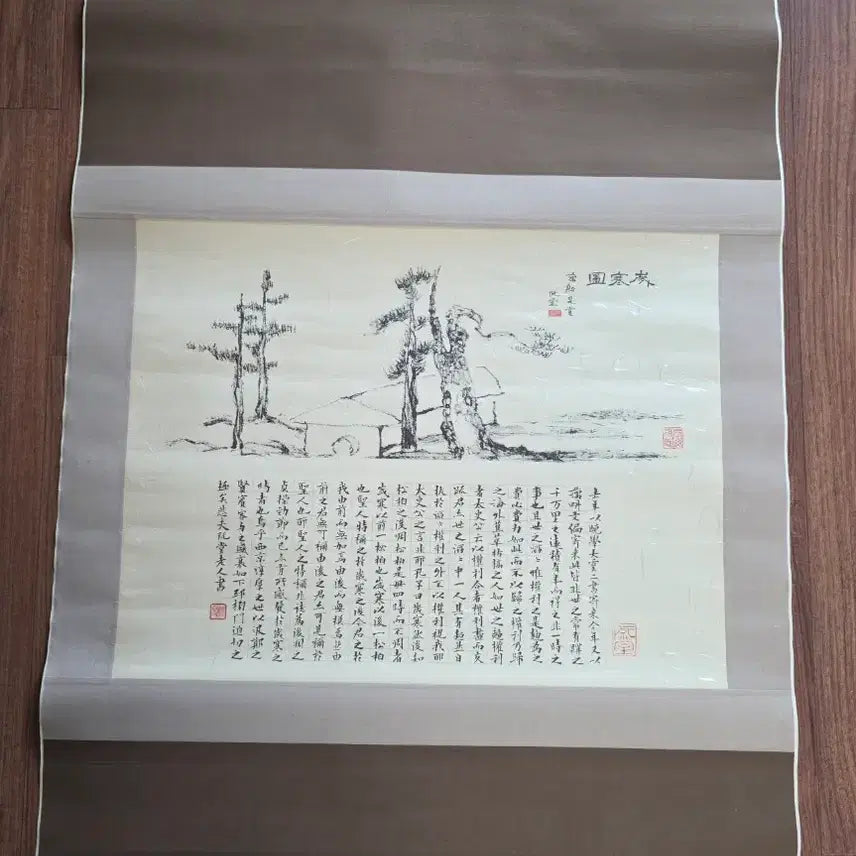 歲寒圖
藕船是賞
阮堂
去年以晚學大雲二書寄來今年又以
藕畊文編寄來此皆非世之常有購之
千万里之遠積有年而得之非一時之
事也且世之滔〻惟權利之是趨爲之
費心費力如此而不以歸之權利乃歸
之海外蕉萃枯槁之人如世之趨權利
者太史公云以權利合者權利盡而交
踈君亦世之滔〻中一人其有超然自
拔於滔〻權利之外不以權利視我耶
太史公之言非耶孔子曰歲寒然後知
松栢之後凋松栢是毋四時而不凋者
歲寒以前一松栢也歲寒以後一松栢
也聖人特稱之於歲寒之後今君之於
我由前而無加焉由後而無損焉然由
前之君無可稱由後之君亦可見稱於
聖人也耶聖人之特稱非徒爲後凋之
貞操勁節而已亦有所感發於歲寒之
時者也烏乎西京淳厚之世以汲鄭之
賢賓客與之盛衰如下邳榜門迫切之
極矣悲夫阮堂老人書